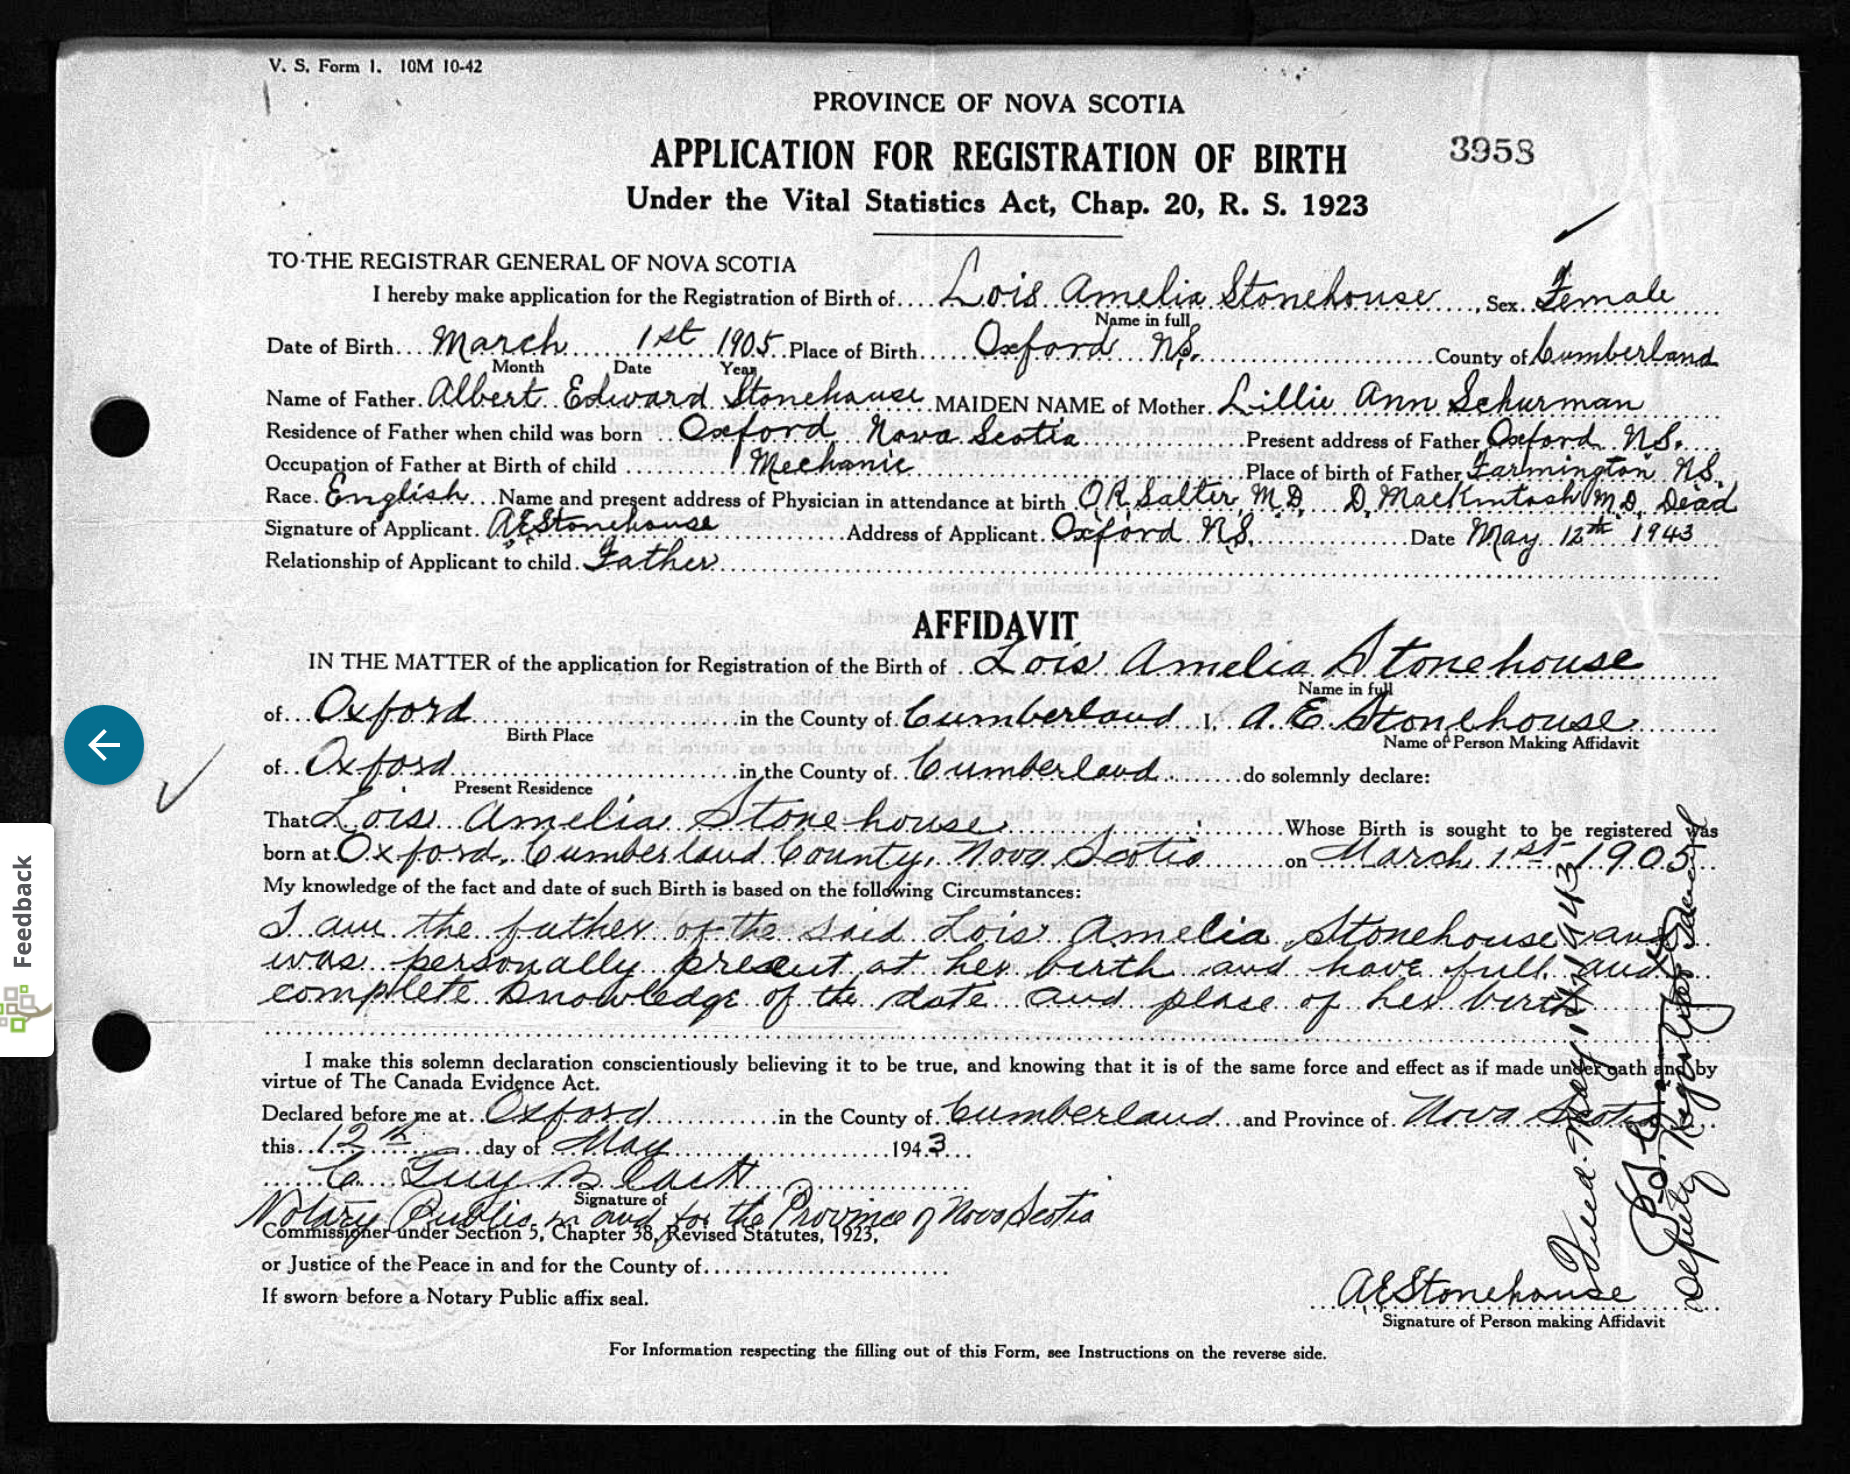 V. S. Form 1. 10M 10-42
PROVINCE OF NOVA SCOTIA
APPLICATION FOR REGISTRATION OF BIRTH
3958
Under the Vital Statistics Act, Chap. 20, R. S. 1923
TO THE REGISTRAR GENERAL OF NOVA SCOTIA
I hereby make application for the Registration of Birth of.... Lois Amelia Stonehouse ...., Sex.. Female
Name in full
Date of Birth.... March 1st 1905 ..Place of Birth...... Oxford N.S. ......County of Cumberland
Month Date Year
Name of Father. Albert Edward Stonehouse MAIDEN NAME of Mother. Lillie Ann Schurman
Residence of Father when child was born ... Oxford Nova Scotia ......Present address of Father Oxford N.S.
Occupation of Father at Birth of child ...... Mechanic ......Place of birth of Father Farmington N.S.
Race. English ...Name and present address of Physician in attendance at birth O.R. Salter, M.D. D. MacKintosh M.D. Dead
Signature of Applicant. A.E. Stonehouse ......Address of Applicant. Oxford N.S. ......Date May 12th 1943
Relationship of Applicant to child. Father
AFFIDAVIT
IN THE MATTER of the application for Registration of the Birth of .. Lois Amelia Stonehouse
Name in full
of... Oxford ......in the County of. Cumberland I, A. E. Stonehouse
Birth Place Name of Person Making Affidavit
of.. Oxford ......in the County of.. Cumberland ......do solemnly declare:
Present Residence
That Lois Amelia Stonehouse ......Whose Birth is sought to be registered was
born at. Oxford, Cumberland County, Nova Scotia ......on March 1st 1905
My knowledge of the fact and date of such Birth is based on the following Circumstances:
I am the father of the said Lois Amelia Stonehouse and
was personally present at her birth and have full and
complete knowledge of the date and place of her birth
I make this solemn declaration conscientiously believing it to be true, and knowing that it is of the same force and effect as if made under oath and by
virtue of The Canada Evidence Act.
Declared before me at.. Oxford ......in the County of. Cumberland ...and Province of. Nova Scotia
this.. 12th ......day of May ......1943...
C. Guy Black
Signature of
Notary Public in and for the Province of Nova Scotia
Commissioner under Section 5, Chapter 38, Revised Statutes, 1923,
or Justice of the Peace in and for the County of......
If sworn before a Notary Public affix seal.
A.E. Stonehouse
Signature of Person making Affidavit
For Information respecting the filling out of this Form, see Instructions on the reverse side.
Filed May 1943
Deputy Registrar General
Feedback